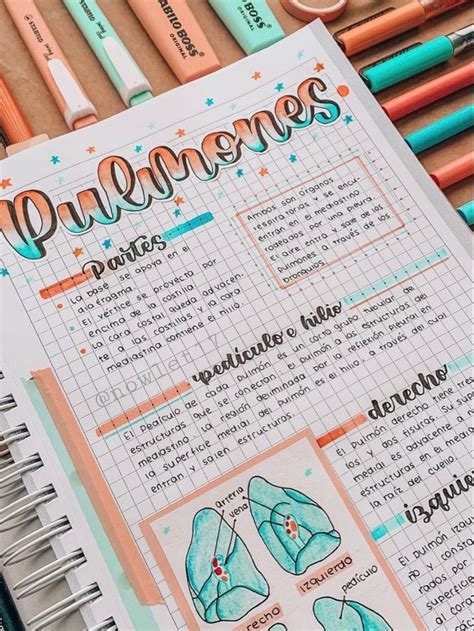 STABILO BOSS
ORIGINAL
STABILO BOSS
ORIGINAL
Pulmones
Partes
La base se apoya en el
diafragma.
El vértice se proyecta por
encima de la costilla
La cara costal queda adyacen-
te a las costillas y la cara
mediastina contiene el hilio
Ambos son órganos
respiratorios y se encu-
entran en el mediastino
rodeados por una pleura.
El aire entra y sale de los
pulmones a través de los
bronquios.
@nowleti17
pedículo e hilio
El pedículo de cada pulmón es un corto grupo tubular de
estructuras que se conectan el pulmón a las estructuras del
mediastino. La región delimitada por la reflexión pleural en
la superficie medial es el hilio, a través del cual
entran y salen estructuras.
derecho
El pulmón derecho tiene
los y dos fisuras. Su
medial es adyacente a
estructuras en el
la raíz del cuello.
izquie
El pulmón iz
arteria
vena
derecho
izquierdo
pedículo